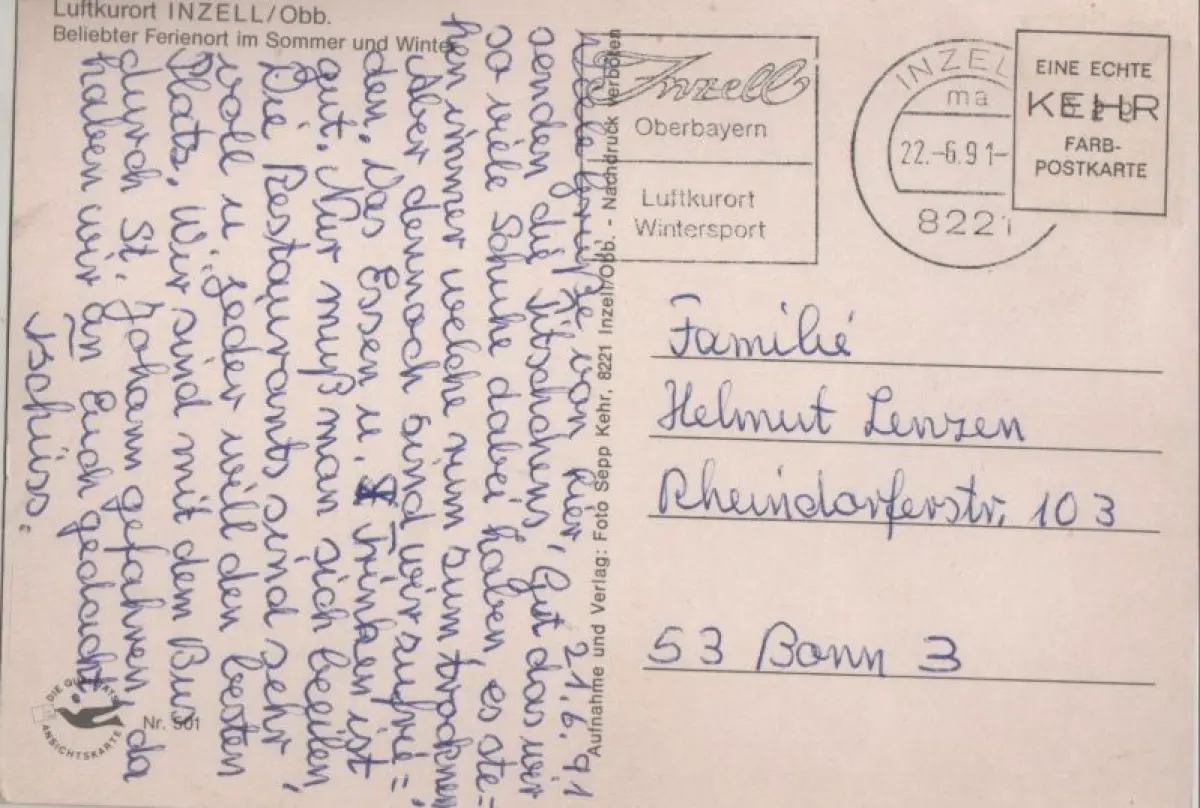 Luftkurort INZELL/Obb.
Beliebter Ferienort im Sommer und Winter
21.6.91
Viele Grüße von hier, Gut das wir
senden die Pitschens.
so viele Schuhe dabei haben, es ste=
hen immer welche zum zum trocknen
Aber dennoch sind wir zufrie=
den. Das Essen u. Trinken ist
gut. Nur muß man sich beeilen,
Die Restaurants sind sehr
voll u. jeder will den besten
Platz. Wir sind mit dem Bus
durch St. Johann gefahren, da
haben wir an Euch gedacht
Tschüss.
DIE QUALITÄTS
ANSICHTSKARTE
Nr. 501
Aufnahme und Verlag: Foto Sepp Kehr, 8221 Inzell/Obb. - Nachdruck verboten
Inzell
Oberbayern
Luftkurort
Wintersport
INZELL
ma
22.-6.91-
8221
EINE ECHTE
KEHR
FARB-
POSTKARTE
Familie
Helmut Lenzen
Rheindorferstr. 103
53 Bonn 3